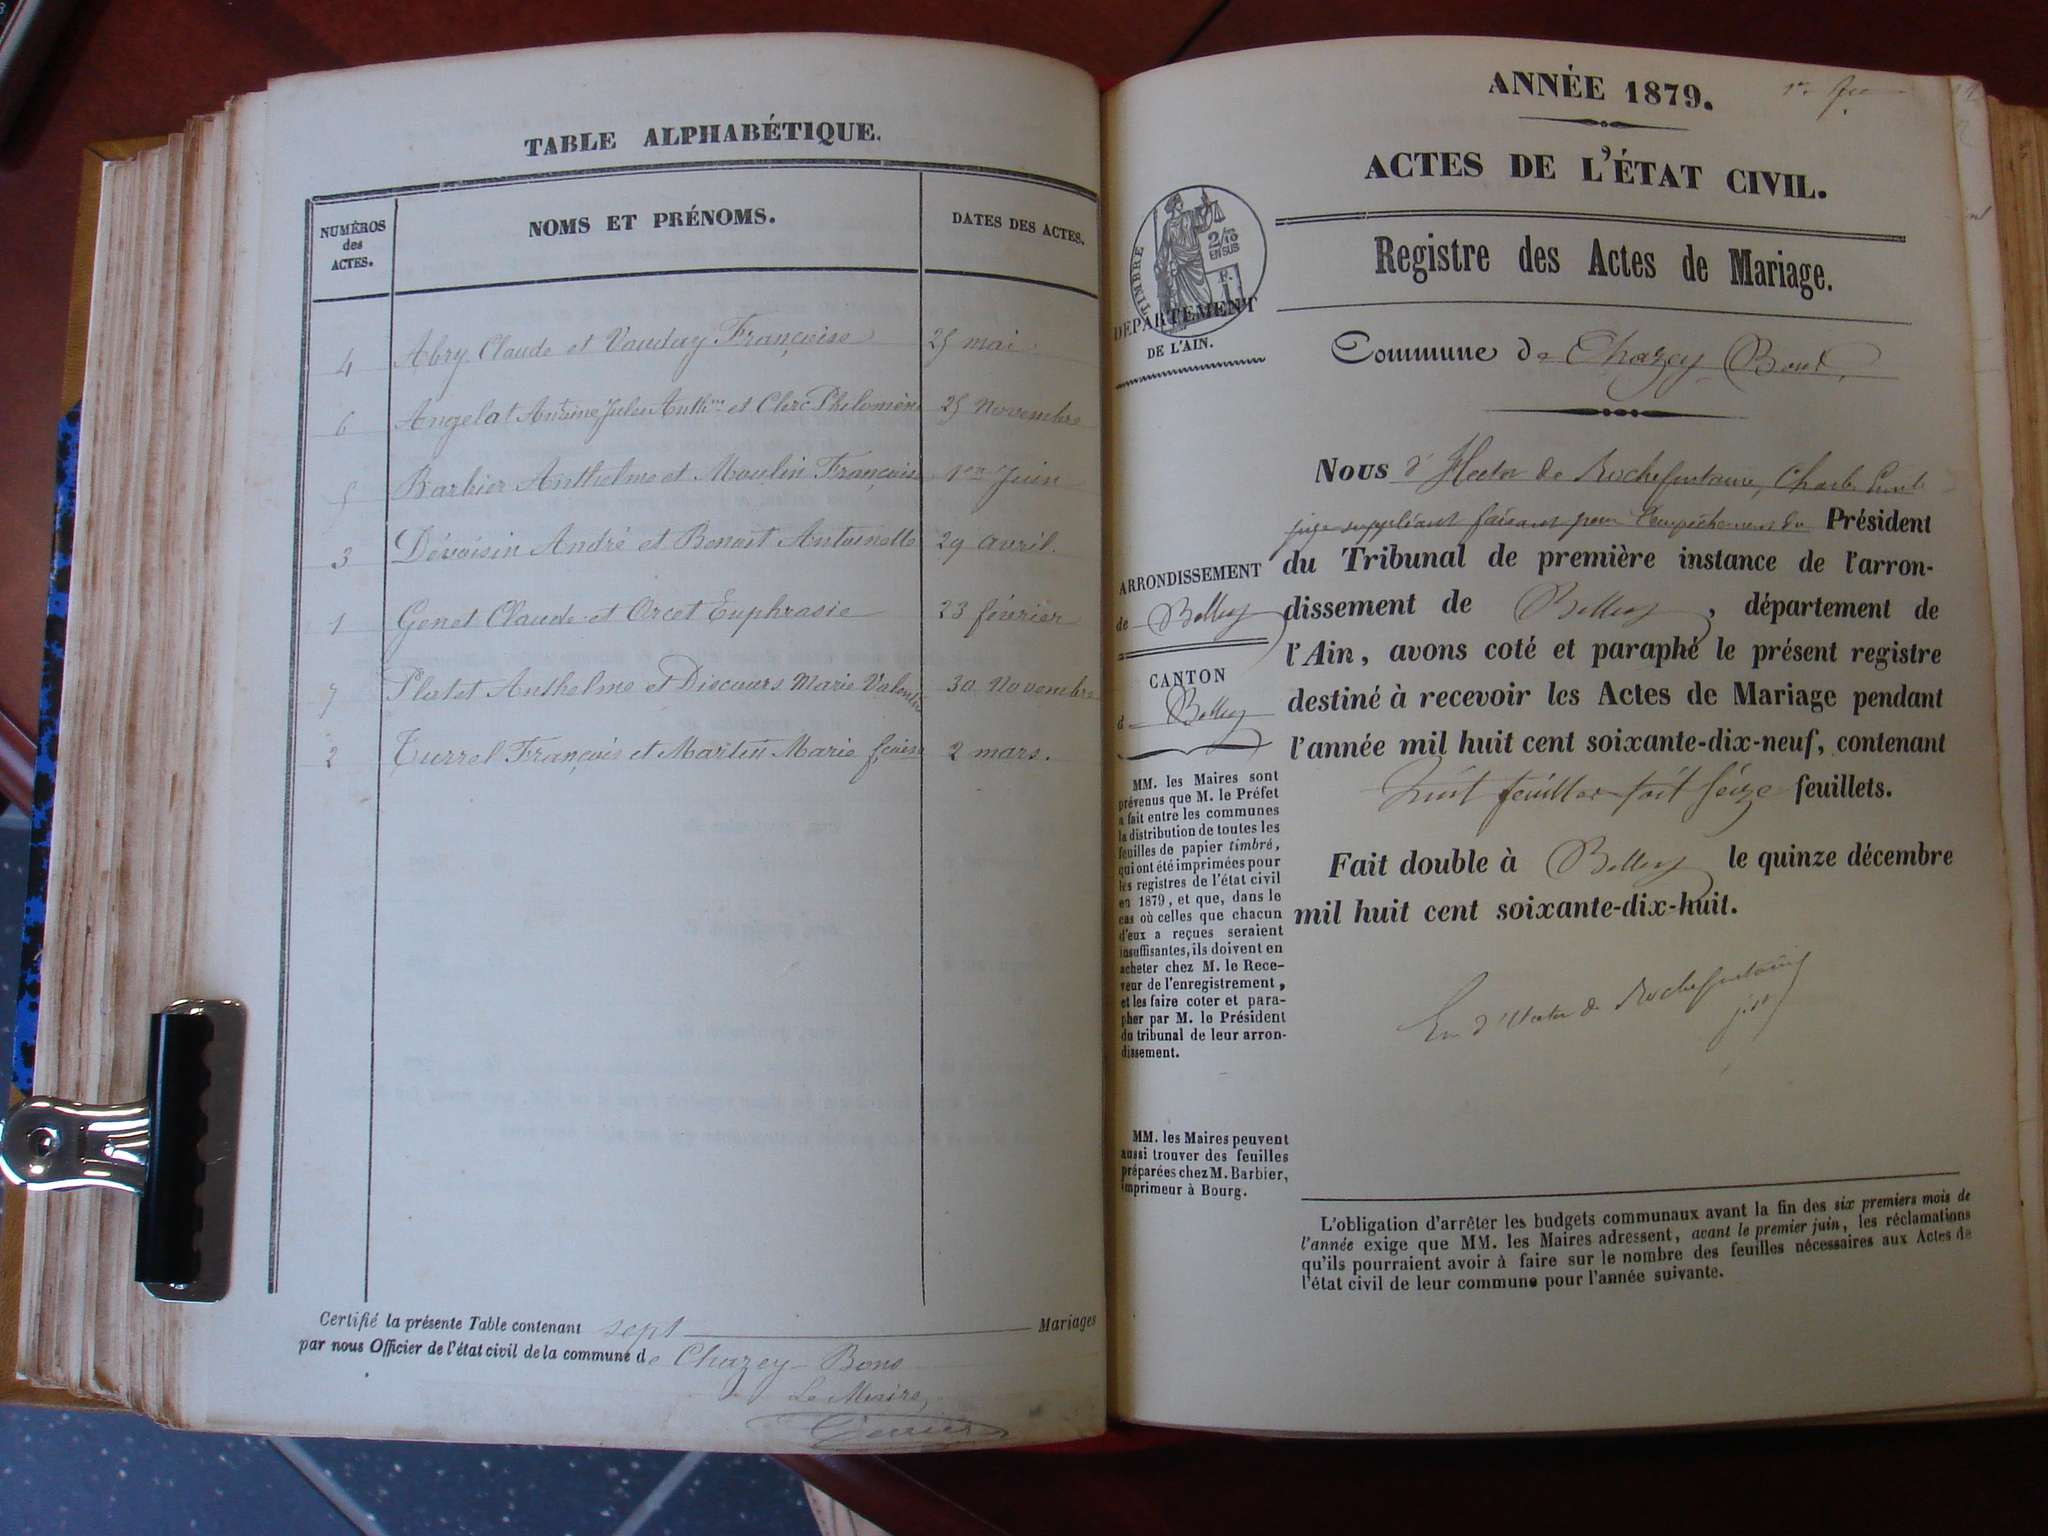 TABLE ALPHABÉTIQUE.
NUMÉROS
des
ACTES.
NOMS ET PRÉNOMS.
DATES DES ACTES.
4 Abry Claude et Vauday Françoise 25 mai
6 Angelat Antoine Jules Anthme et Clerc Philomène 25 Novembre
5 Barbier Anthelme et Moulin Françoise 1er Juin
3 Dévoisin André et Benoit Antoinette 29 avril.
1 Genet Claude et Orcet Euphrasie 23 février
7 Plutet Anthelme et Discours Marie Valentine 30 Novembre
2 Turrel François et Martin Marie 2 mars.
Certifié la présente Table contenant sept Mariages
par nous Officier de l'état civil de la commune de Chazey-Bons
Le Maire,
ANNÉE 1879.
ACTES DE L'ÉTAT CIVIL.
Registre des Actes de Mariage.
TIMBRE
2/10
EN SUS
DÉPARTEMENT
DE L'AIN.
Commune de Chazey Bons
Nous d'Hector de Rochefontaine, Charles
juge suppléant faisant pour l'empêchement du Président
du Tribunal de première instance de l'arron-
dissement de Belley, département de
l'Ain, avons coté et paraphé le présent registre
destiné à recevoir les Actes de Mariage pendant
l'année mil huit cent soixante-dix-neuf, contenant
huit feuilles soit seize feuillets.
Fait double à Belley le quinze décembre
mil huit cent soixante-dix-huit.
d'Hector de Rochefontaine
ARRONDISSEMENT
de Belley
CANTON
d Belley
MM. les Maires sont
prévenus que M. le Préfet
a fait entre les communes
la distribution de toutes les
feuilles de papier timbré,
qui ont été imprimées pour
les registres de l'état civil
en 1879, et que, dans le
cas où celles que chacun
d'eux a reçues seraient
insuffisantes, ils doivent en
acheter chez M. le Rece-
veur de l'enregistrement,
et les faire coter et para-
pher par M. le Président
du tribunal de leur arron-
dissement.
MM. les Maires peuvent
aussi trouver des feuilles
préparées chez M. Barbier,
imprimeur à Bourg.
L'obligation d'arrêter les budgets communaux avant la fin des six premiers mois de
l'année exige que MM. les Maires adressent, avant le premier juin, les réclamations
qu'ils pourraient avoir à faire sur le nombre des feuilles nécessaires aux Actes de
l'état civil de leur commune pour l'année suivante.